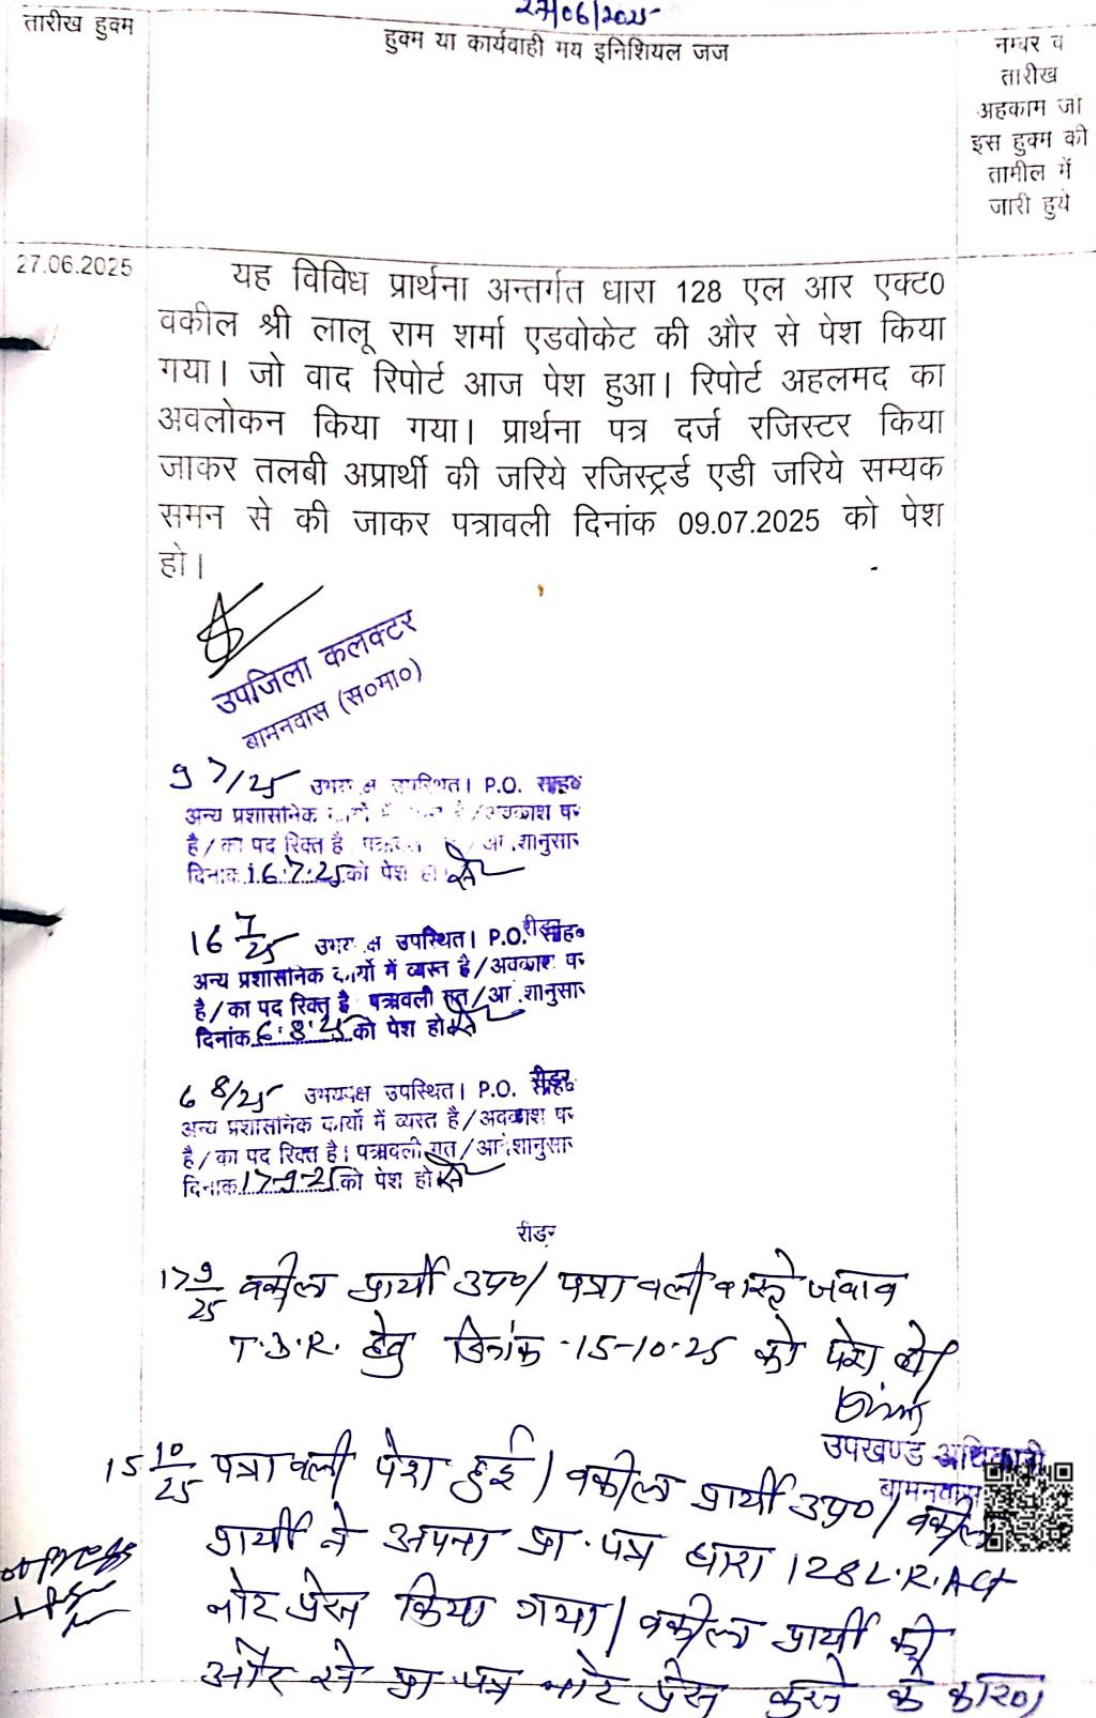 27/06/2025
तारीख हुक्म
हुक्म या कार्यवाही मय इनिशियल जज
नम्बर व
तारीख
अहकाम जो
इस हुक्म की
तामील में
जारी हुये
27.06.2025
यह विविध प्रार्थना अन्तर्गत धारा 128 एल आर एक्ट0
वकील श्री लालू राम शर्मा एडवोकेट की और से पेश किया
गया। जो वाद रिपोर्ट आज पेश हुआ। रिपोर्ट अहलमद का
अवलोकन किया गया। प्रार्थना पत्र दर्ज रजिस्टर किया
जाकर तलबी अप्रार्थी की जरिये रजिस्ट्रर्ड एडी जरिये सम्यक
समन से की जाकर पत्रावली दिनांक 09.07.2025 को पेश
हो।
उपजिला कलक्टर
बामनवास (स०मा०)
9 7/25 उपस्थित। P.O. साहब
अन्य प्रशासनिक अवकाश पर
है/का पद रिक्त है
दिनांक 16.7.25 को पेश हो
16 7/25 उपस्थित। P.O. साहब
रीडर
अन्य प्रशासनिक कार्यो में व्यस्त है/अवकाश पर
है/का पद रिक्त है पत्रावली
दिनांक 6.8.25 को पेश हो
6 8/25 उभयपक्ष उपस्थित। P.O. साहब
रीडर
अन्य प्रशासनिक कार्यो में व्यस्त है/अवकाश पर
है/का पद रिक्त है। पत्रावली
दिनांक 17-9-25 को पेश हो
रीडर
17 9/25 वकील प्रार्थी उप०/ पत्रावली वास्ते जवाब
T.D.R. हेतु दिनांक 15-10-25 को पेश हो।
उपखण्ड अधिकारी
बामनवास
15 10/25 पत्रावली पेश हुई। वकील प्रार्थी उप०। वकील
प्रार्थी ने अपना प्रा. पत्र धारा 128 L.R. Act
नोट प्रेस किया गया। वकील प्रार्थी की
और से प्रा. पत्र नोट प्रेस करने के कारण